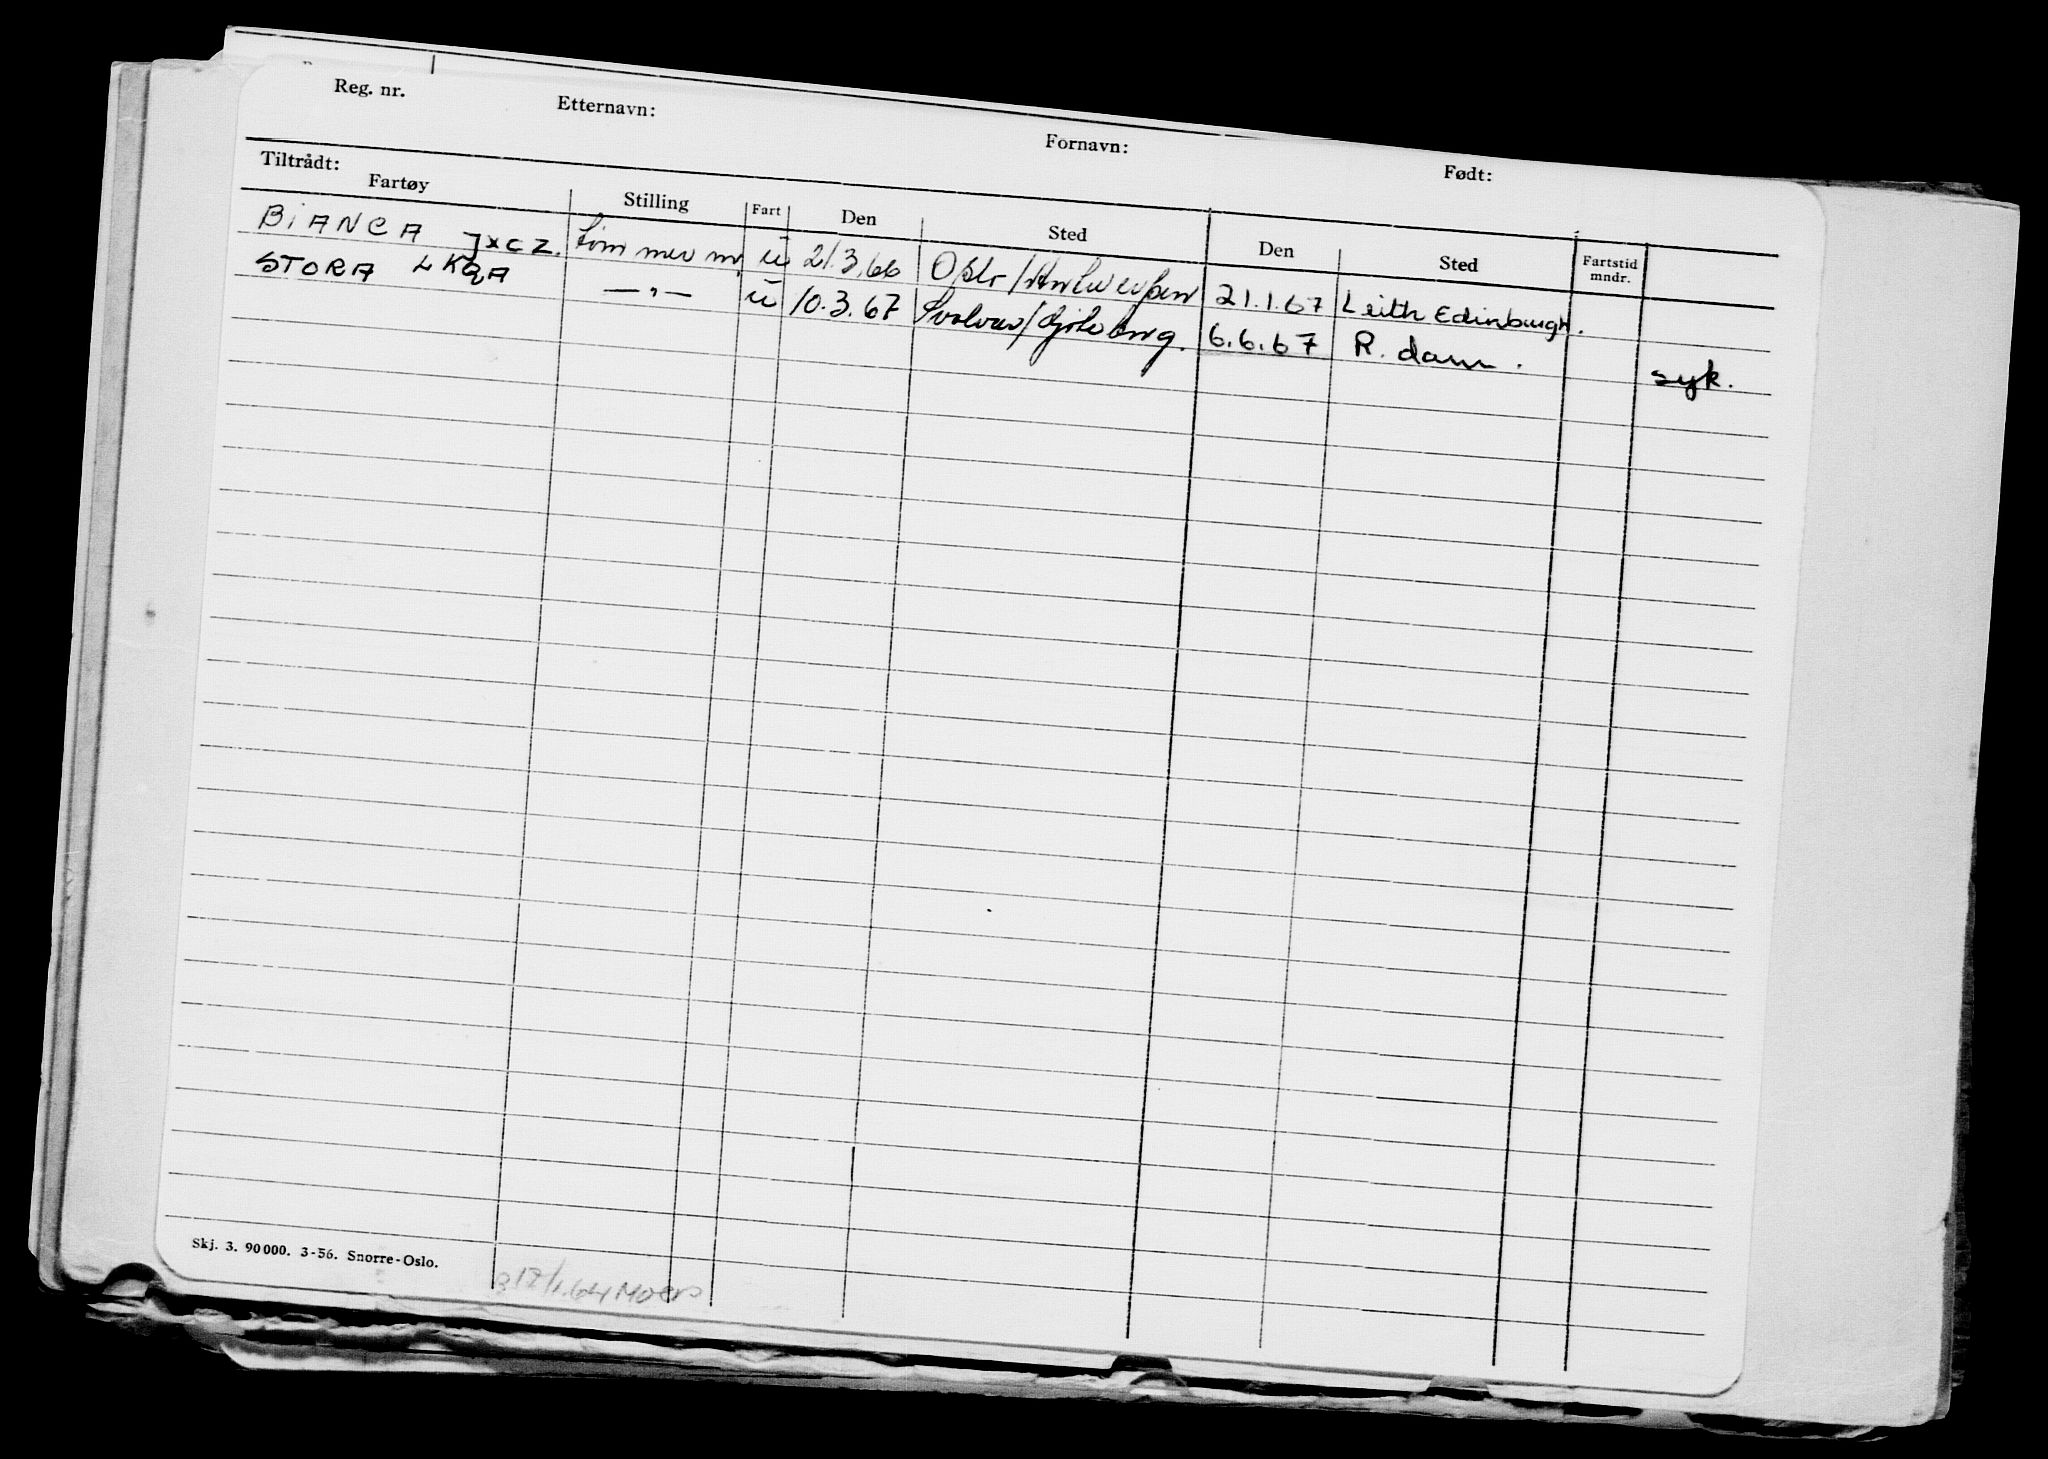 Reg. nr. Etternavn: Fornavn: Født:
Tiltrådt:
Fartøy Stilling Fart Den Sted Den Sted Fartstid mndr.
BIANCA JXCZ. tømmerm. u 21.3.66 Oslo/Antwerpen 21.1.67 Leith Edinburgh.
STORA LKQA —"— u 10.3.67 Svolvær/Gøteborg. 6.6.67 R.dam. syk.
Skj. 3. 90 000. 3-56. Snorre-Oslo.